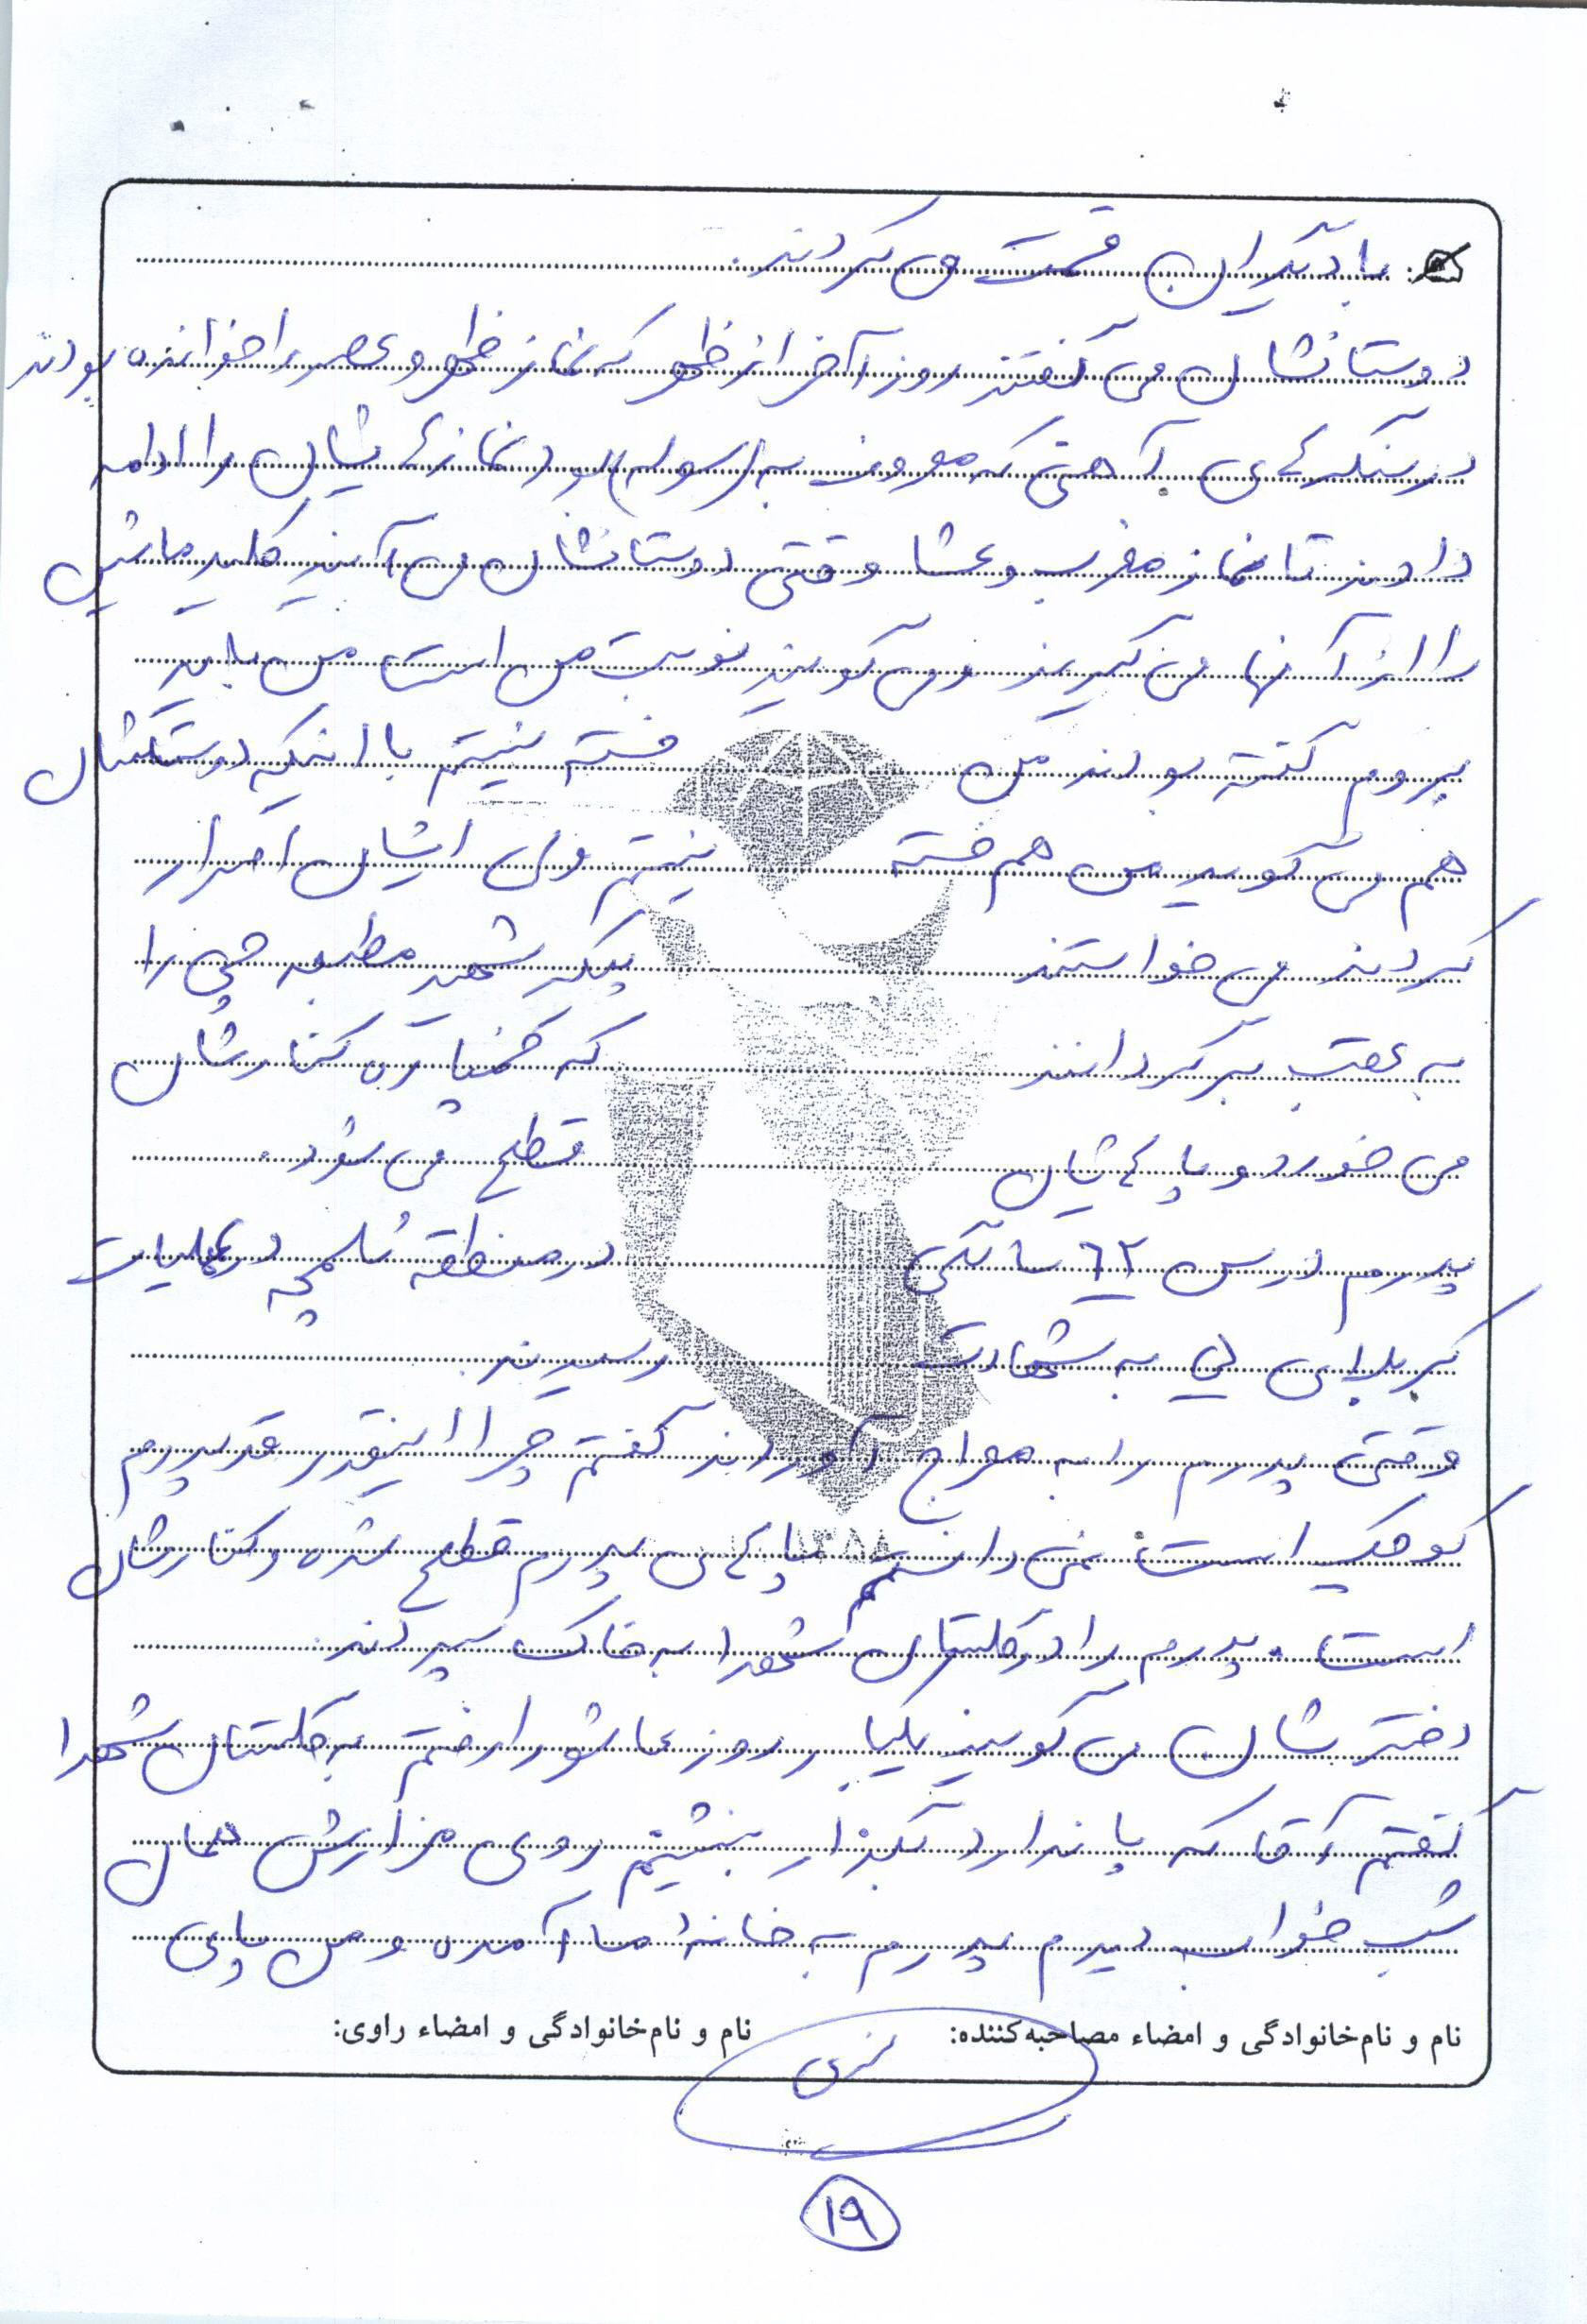 با دیگران قسمت می کردند.
دوستانشان می گفتند روز آخر از ظهر که نماز ظهر و عصر را خوانده بودند
در سنگرهای آهنی که معروف به رسولی بود نمازهایشان را ادامه
دادند تا نماز مغرب و عشا وقتی دوستانشان می آیند کلید ماشین
را از آنها می گیرند و می گویند نوبت من است من باید
بروم گفته بودند من خسته نیستم با اینکه دوستشان
هم می گوید من هم خسته نیستم ولی ایشان اصرار
کردند می خواستند پیکر شهید مطبعه چی را
به عقب برگردانند که خمپاره کنارشان
می خورد و پاهایشان قطع می شود.
پدرم در سن ۶۲ سالگی در منطقه شلمچه در عملیات
کربلای به شهادت رسیدند.
وقتی پدرم را به معراج آوردند گفتم چرا اینقدر قد پدرم
کوچک است نمی دانستم پاهای پدرم قطع شده و کنارشان
است. پدرم را در گلستان شهدا به خاک سپردند.
دخترشان می گویند یکبار روز عاشورا رفتم به گلستان شهدا
گفتم آقا که پا ندارد بگذار بنشینم روی مزارش همان
شب خواب دیدم پدرم به خانه ما آمده و من پای
نام و نام‌خانوادگی و امضاء مصاحبه‌کننده: نام و نام‌خانوادگی و امضاء راوی:
۱۹